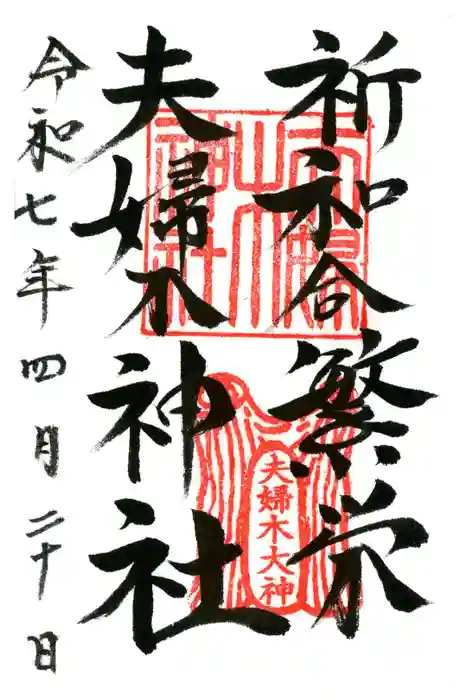 祈和合繁栄
夫婦木神社
令和七年四月二十日
夫婦木神社
夫婦木大神